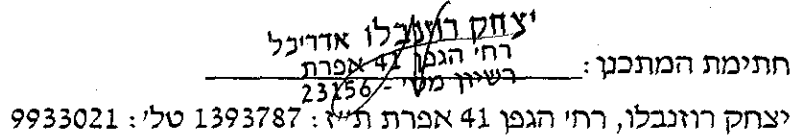 יצחק רוזנבלו אדריכל
רחי הגפן 41 אפרת
רשיון מס׳ - 23156
חתימת המתכנן :
יצחק רוזנבלו, רחי הגפן 41 אפרת ת״ז : 1393787 טלי : 9933021